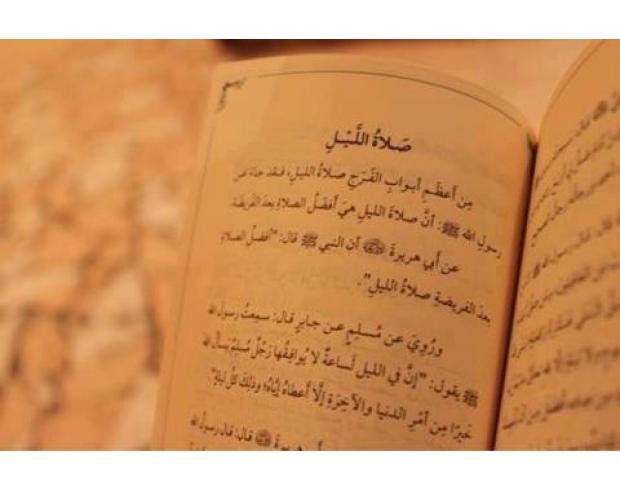 صَلاةُ اللَّيْلِ
مِن أعظَمِ أبوابِ الفَرَجِ صَلاةُ الليلِ، فـقـد جاءَ عن
رسولِ الله ﷺ: أنَّ صلاةَ الليلِ هيَ أفضَلُ الصلاةِ بعدَ الفَريضَة.
عن أبي هريرةَ ؓ أن النبي ﷺ قال: "أفضَلُ الصلاةِ
بعدَ الفريضةِ صلاةُ الليلِ".
ورُوِيَ عن مُسلِمٍ عن جابرٍ قال: سمِعتُ رسولَ الله
ﷺ يقول: "إنَّ في الليلِ لَساعةً لا يُوافِقُها رَجُلٌ مُسلِمٌ يَسألُ اللهَ
خَيرًا مِن أمْرِ الدنيا والآخِرَةِ إلَّا أعطاهُ إيَّاهُ؛ وذلِكَ كُلَّ ليلةٍ".
هريرةَ ؓ قال: قال رسولُ الله